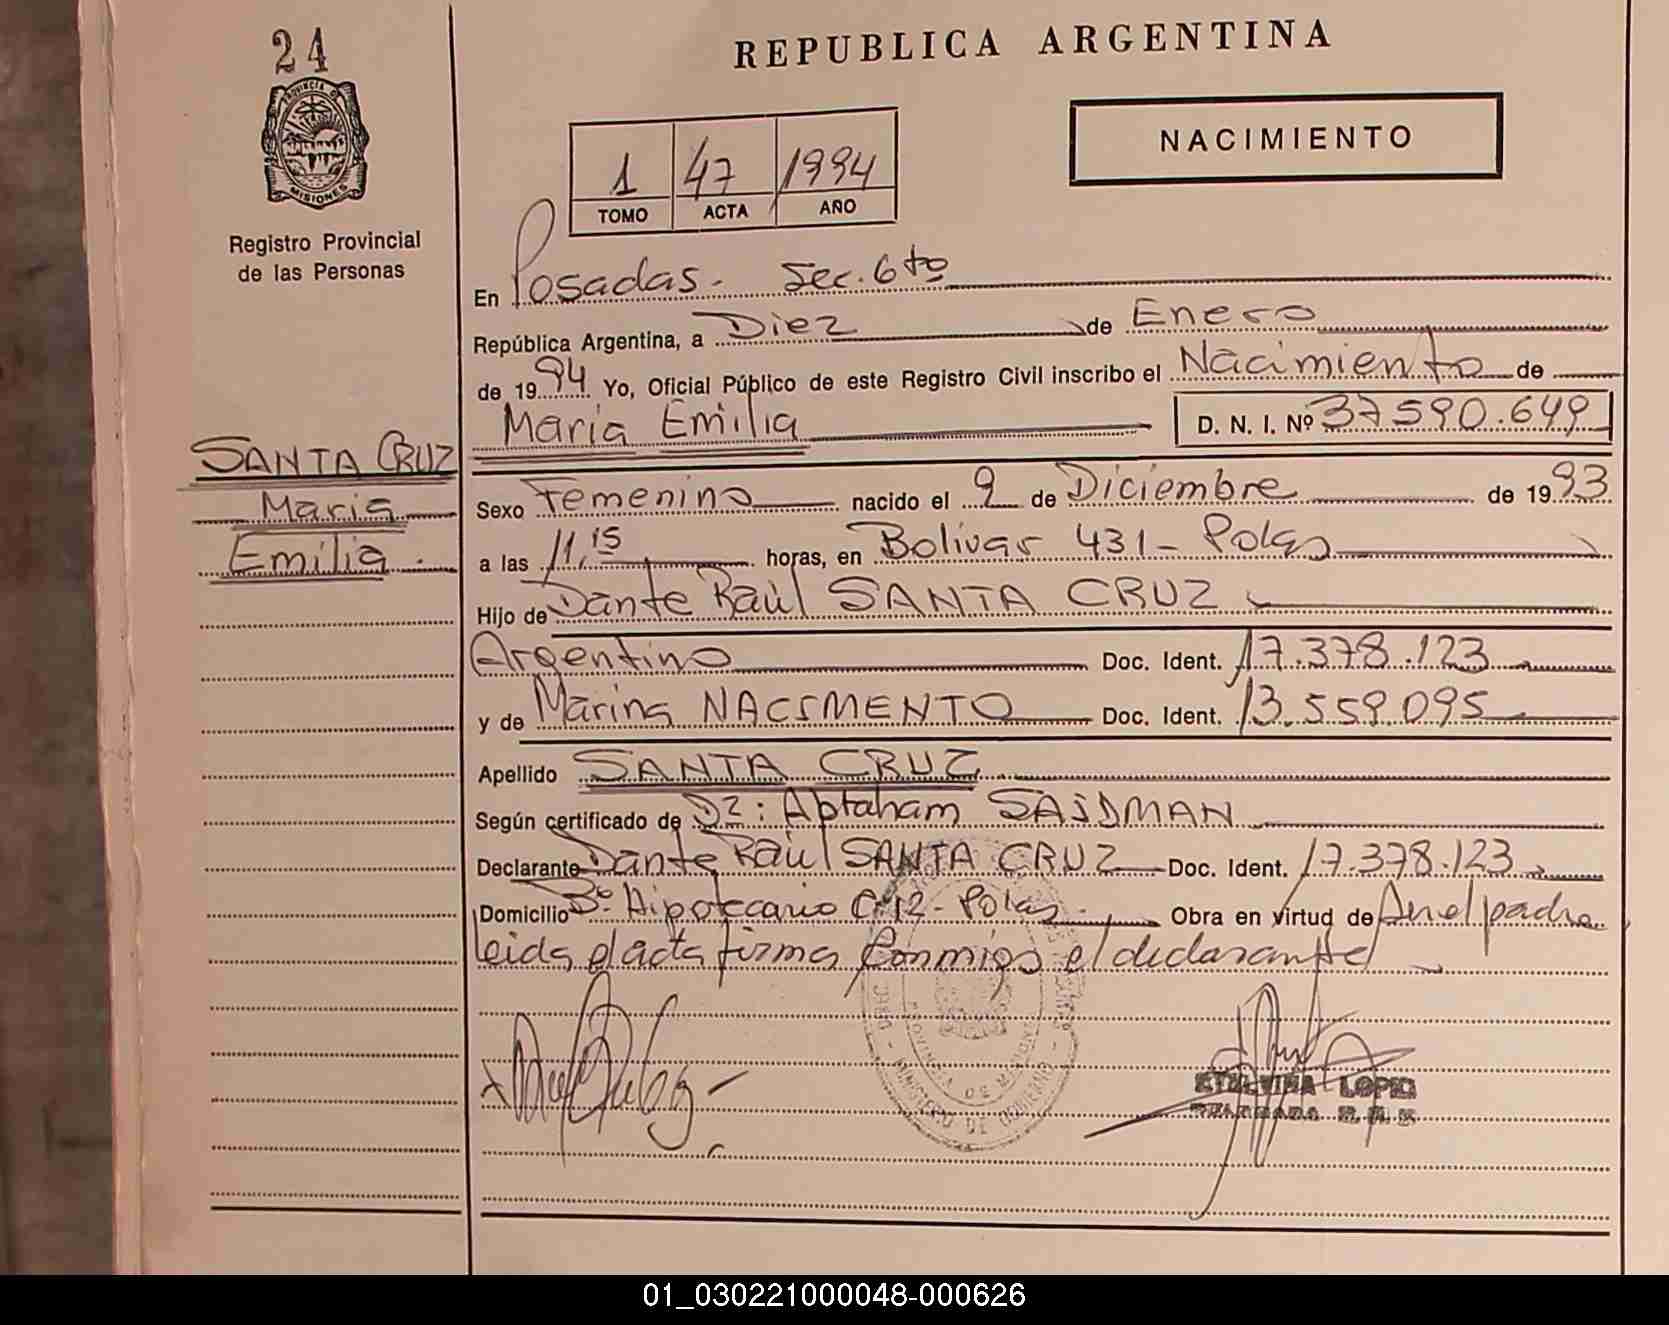 24
REPUBLICA ARGENTINA
PROVINCIA DE
MISIONES
Registro Provincial
de las Personas
1 47 1994
TOMO ACTA AÑO
NACIMIENTO
En Posadas. Sec. 6to
República Argentina, a Diez de Enero
de 1994 Yo, Oficial Público de este Registro Civil inscribo el Nacimiento de
María Emilia D. N. I. Nº 37590.649
SANTA CRUZ
Maria
Emilia.
Sexo Femenino nacido el 9 de Diciembre de 1993
a las 11,15 horas, en Bolivar 431 - Pdas
Hijo de Dante Raúl SANTA CRUZ
Argentino Doc. Ident. 17.378.123
y de Marina NACIMENTO Doc. Ident. 13.559.095
Apellido SANTA CRUZ
Según certificado de Dr: Abraham SAIDMAN
Declarante Dante Raúl SANTA CRUZ Doc. Ident. 17.378.123
Domicilio Bº Hipotecario C. 12 - Pdas. Obra en virtud de ser el padre
leida el acta firma conmigo el declarante
PROVINCIA DE MISIONES
MINISTERIO DE GOBIERNO
ETELVINA LOPEZ
01_030221000048-000626